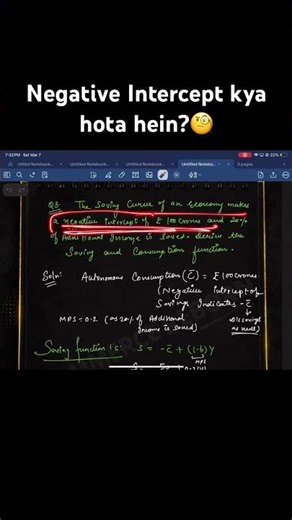 Negative Intercept kya
hota hein?🧐
7:33 PM Sat Mar 7
22%
Untitled Notebook... Untitled Notebook... Untitled Notebook...
Q3: The Saving Curve of an Economy makes
a negative intercept of ₹ 100 crores and 20%
of Additional Income is Saved. Derive the
Saving and Consumption function.
Soln: Autonomous Consumption (C̄) = ₹ 100 crores
(Negative intercept of
Savings Indicates -C̄
MPS = 0.2 (as 20% of Additional
Income is saved)
Saving function is: S = -C̄ + (1-b) Y
MPS